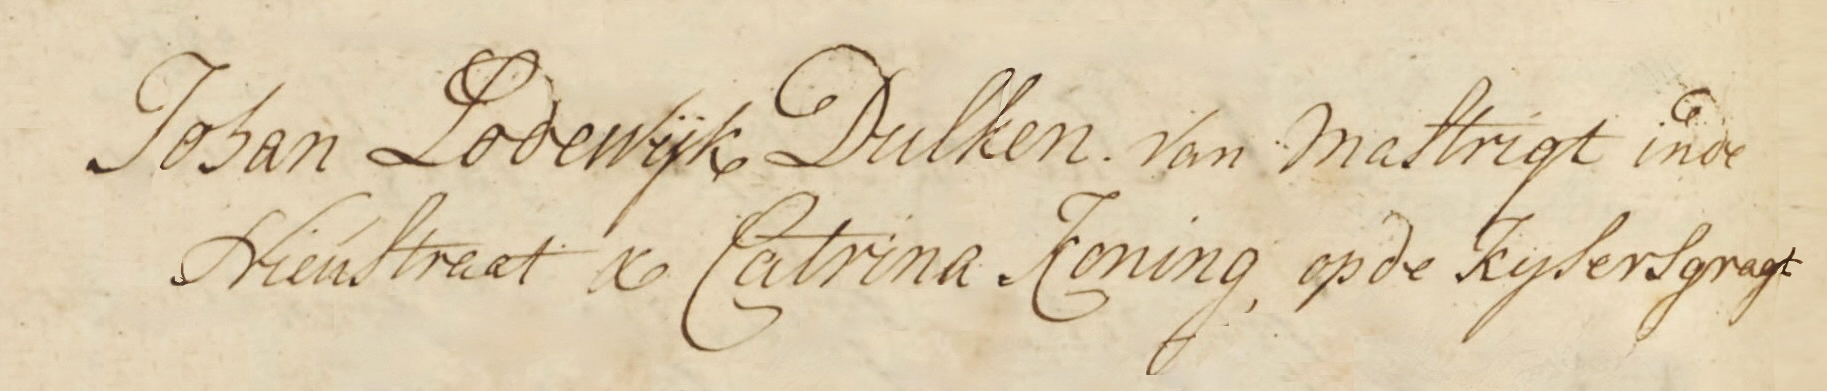 Johan Lodewijk Dulken. van Mastrigt in de
Nieustraat & Catrina Koning, op de Kysersgragt